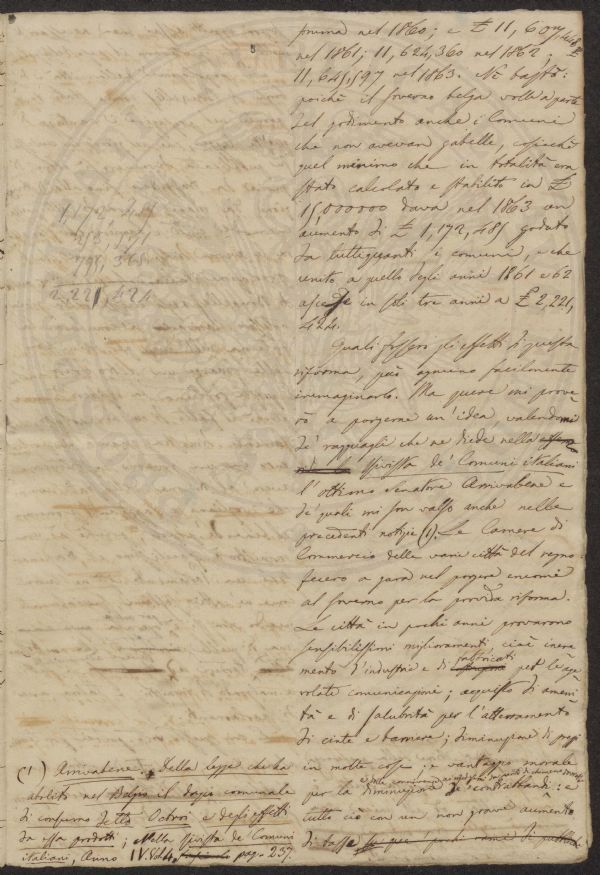 somma nel 1860; e £ 11,6
nel 1861; 11,624,360 nel 1862.
11,645,597 nel 1863. Nè bastò:
poichè il Governo belga volle a parte
del godimento anche i Comuni
che non avevan gabelle, cosicchè
quel minimo che in totalità era
stato calcolato e stabilito in £
15,000000 dava nel 1863 un
aumento di £ 1,172,485 goduto
da tuttiquanti i comuni, e che
unito a quello degli anni 1861 e 62
ascese in soli tre anni a £ 2,221,
424.
Quali fossero gli effetti di questa
riforma, può ognuno facilmente
immaginarlo. Ma pure mi prove
rò a porgerne un'idea valendomi
de' ragguagli che ne diede nella
rivista de' Comuni italiani
l'ottimo Senatore Arrivabene e
de' quali mi son valso anche nelle
precedenti notizie (1). Le Camere di
Commercio delle varie città del regno
fecero a gara nel porgere encomi
al Governo per la provida riforma.
Le città in pochi anni provarono
sensibilissimi miglioramenti, cioè incre
mento d'industrie e di fabbricati per le age
volate comunicazioni; acquisto di ameni
tà e di salubrità per l'atterramento
di cinte e barriere; diminuzione di pregi
in molte cose; e vantaggio morale
per la diminuzione de' contrabbandi: e
tutto ciò con un non grave aumento
di tasse
1,172,485
795,368
2,221,424
(1) Arrivabene. Della legge che ha
abolito nel Belgio il dazio comunale
di consumo detto Octroi e degli effetti
da essa prodotti; Nella rivista de' Comuni
italiani, Anno IV. pag. 237.